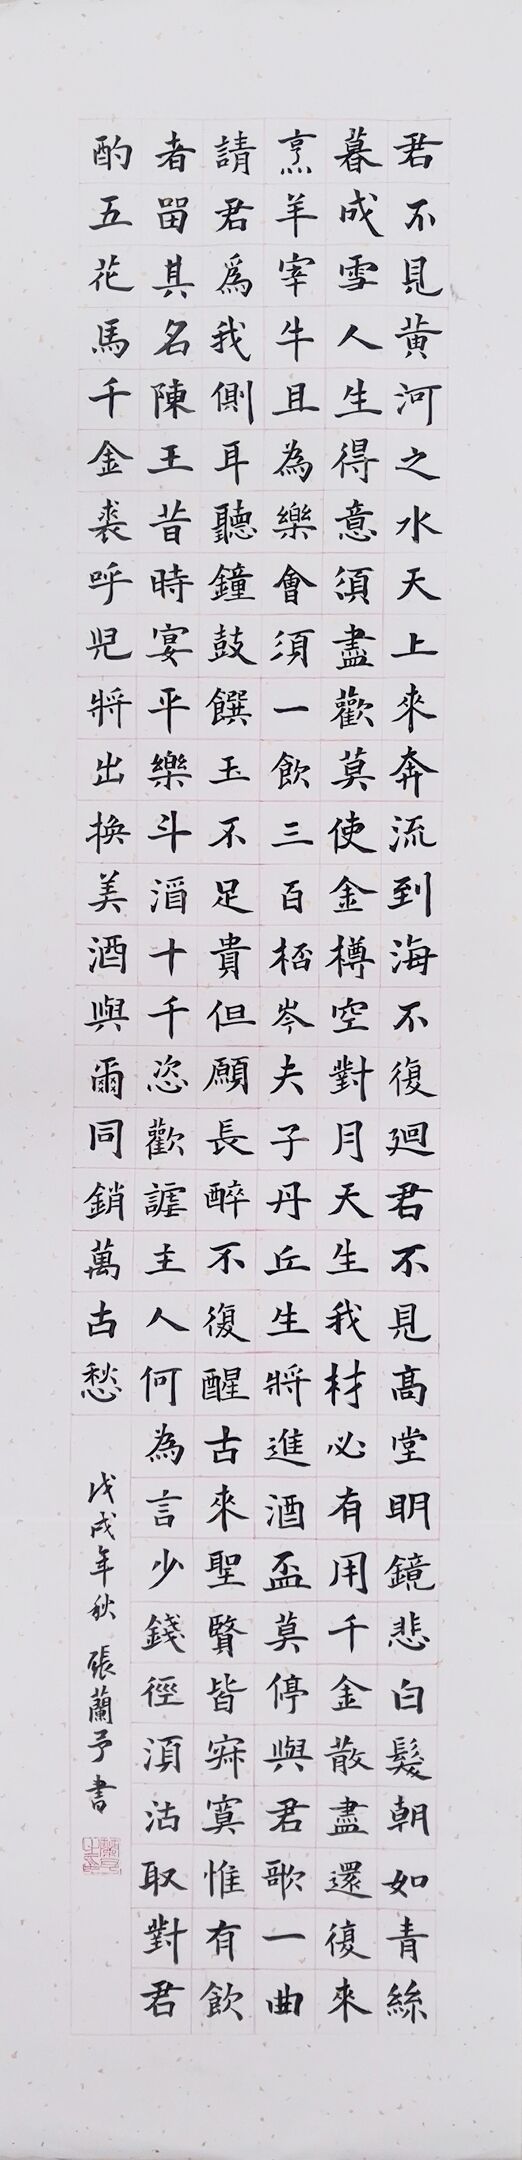 君不見黃河之水天上來奔流到海不復迴君不見高堂明鏡悲白髮朝如青絲
暮成雪人生得意須盡歡莫使金樽空對月天生我材必有用千金散盡還復來
烹羊宰牛且為樂會須一飲三百桮岑夫子丹丘生將進酒盃莫停與君歌一曲
請君爲我側耳聽鐘鼓饌玉不足貴但願長醉不復醒古來聖賢皆寂寞惟有飲
者畱其名陳王昔時宴平樂斗酒十千恣歡謔主人何為言少錢徑須沽取對君
酌五花馬千金裘呼児將出換美酒與爾同銷萬古愁
戊戌年秋 張蘭予書